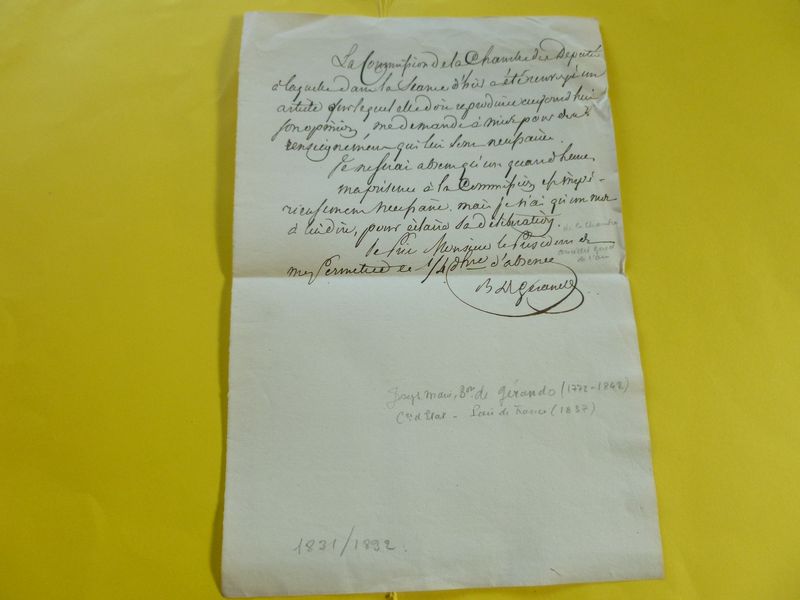 La Commission de la Chambre des Députés
à laquelle dans la Séance d'hier a été renvoyé un
article sur lequel elle doit reproduire aujourd'hui
son opinion, me demande à minuit pour des
renseignemens qui lui sont nécessaires.
Je ne serai absent qu'un quart d'heure,
ma présence à la Commission est impé-
rieusement nécessaire. mais je n'ai qu'un mot
à lui dire, pour éclairer sa délibération.
de la Chambre
Je prie Monsieur le Président de
me permettre ce 1/4 d'hre d'absence
Bn Degérando
Joseph Marie, Bon de Gérando (1772-1842)
Cer d'Etat - Pair de France (1837)
1831/1832.